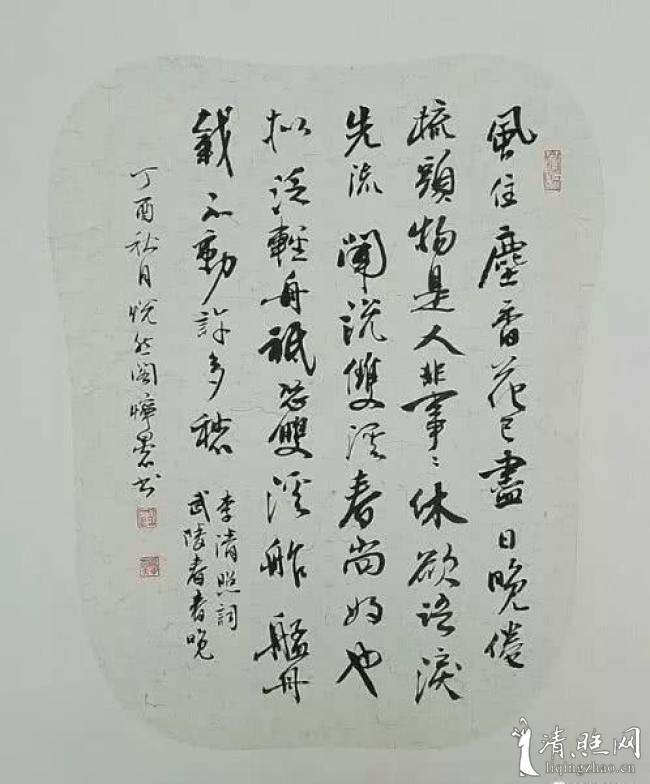 風住塵香花已盡日晚倦
梳頭物是人非事〻休欲語淚
先流聞說雙溪春尚好也
拟泛輕舟祗恐雙溪舴艋舟
載不動許多愁
李清照詞
武陵春春晚
丁酉秋月悦然阁婷墨书
清旺网
liqingzhao.cn